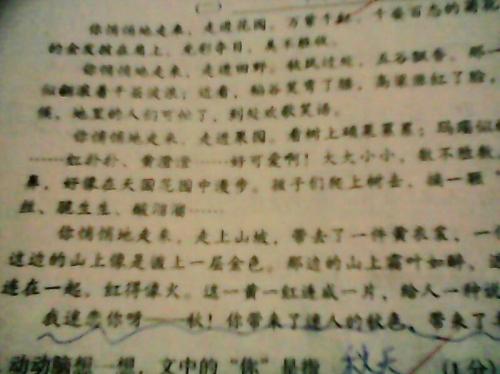 (二)
你悄悄地走来，走进花园。万紫千红、千姿百态的菊花
的金发披在肩上，光彩夺目，美不胜收。
你悄悄地走来，走进田野。秋风过处，五谷飘香。那一
似翻滚着千层波浪；近看，稻谷笑弯了腰，高粱涨红了脸，
候，地里的人们可忙了，到处欢歌笑语。
你悄悄地走来，走进果园。看树上硕果累累：玛瑙似
……红扑扑、黄澄澄……好可爱啊！大大小小，数不胜数
鼻，好像在天国花园中漫步。孩子们爬上树去，摘一颗
丝、脆生生、酸溜溜……
你悄悄地走来，走上山坡，带去了一件黄衣裳，一
这边的山上像是披上一层金色。那边的山上霜叶如醉，
连在一起，红得像火。这一黄一红连成一片，给人一种
我迷恋你呀——秋！你带来了迷人的秋色，带来了
动动脑想一想，文中的“你”是指 秋天 (1分)